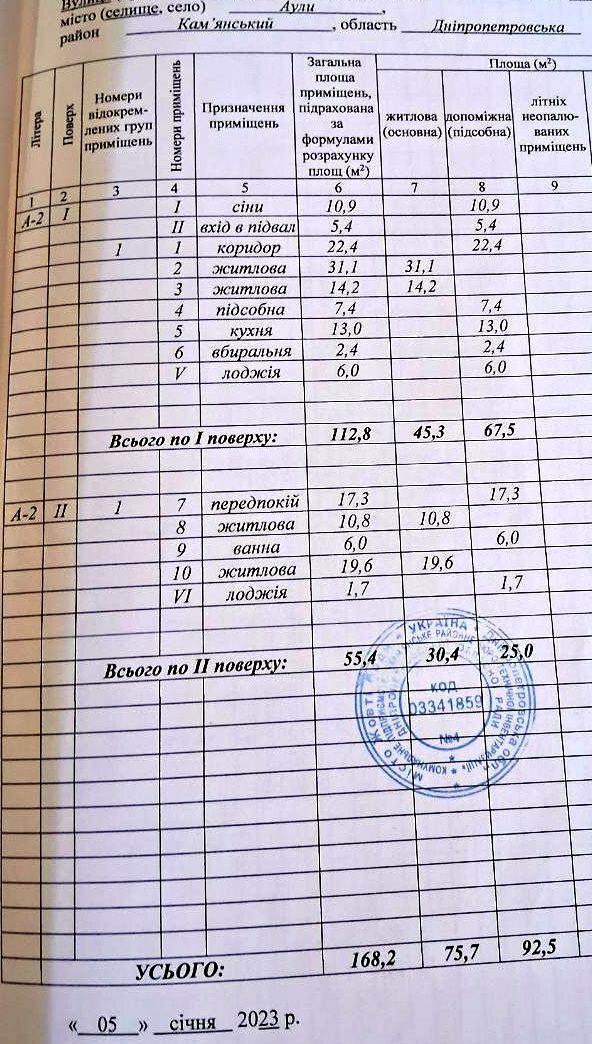 місто (селище, село) Аули ,
район Кам'янський , область Дніпропетровська
Літера
Поверх
Номери відокрем-лених груп приміщень
Номери приміщень
Призначення приміщень
Загальна площа приміщень, підрахована за формулами розрахунку площ (м²)
Площа (м²)
житлова (основна)
допоміжна (підсобна)
літніх неопалю-ваних приміщень
1 2 3 4 5 6 7 8 9
А-2 I I сіни 10,9 10,9
II вхід в підвал 5,4 5,4
1 1 коридор 22,4 22,4
2 житлова 31,1 31,1
3 житлова 14,2 14,2
4 підсобна 7,4 7,4
5 кухня 13,0 13,0
6 вбиральня 2,4 2,4
V лоджія 6,0 6,0
Всього по I поверху: 112,8 45,3 67,5
А-2 II 1 7 передпокій 17,3 17,3
8 житлова 10,8 10,8
9 ванна 6,0 6,0
10 житлова 19,6 19,6
VI лоджія 1,7 1,7
Всього по II поверху: 55,4 30,4 25,0
УКРАЇНА
код
03341859
№4
УСЬОГО: 168,2 75,7 92,5
« 05 » січня 2023 р.